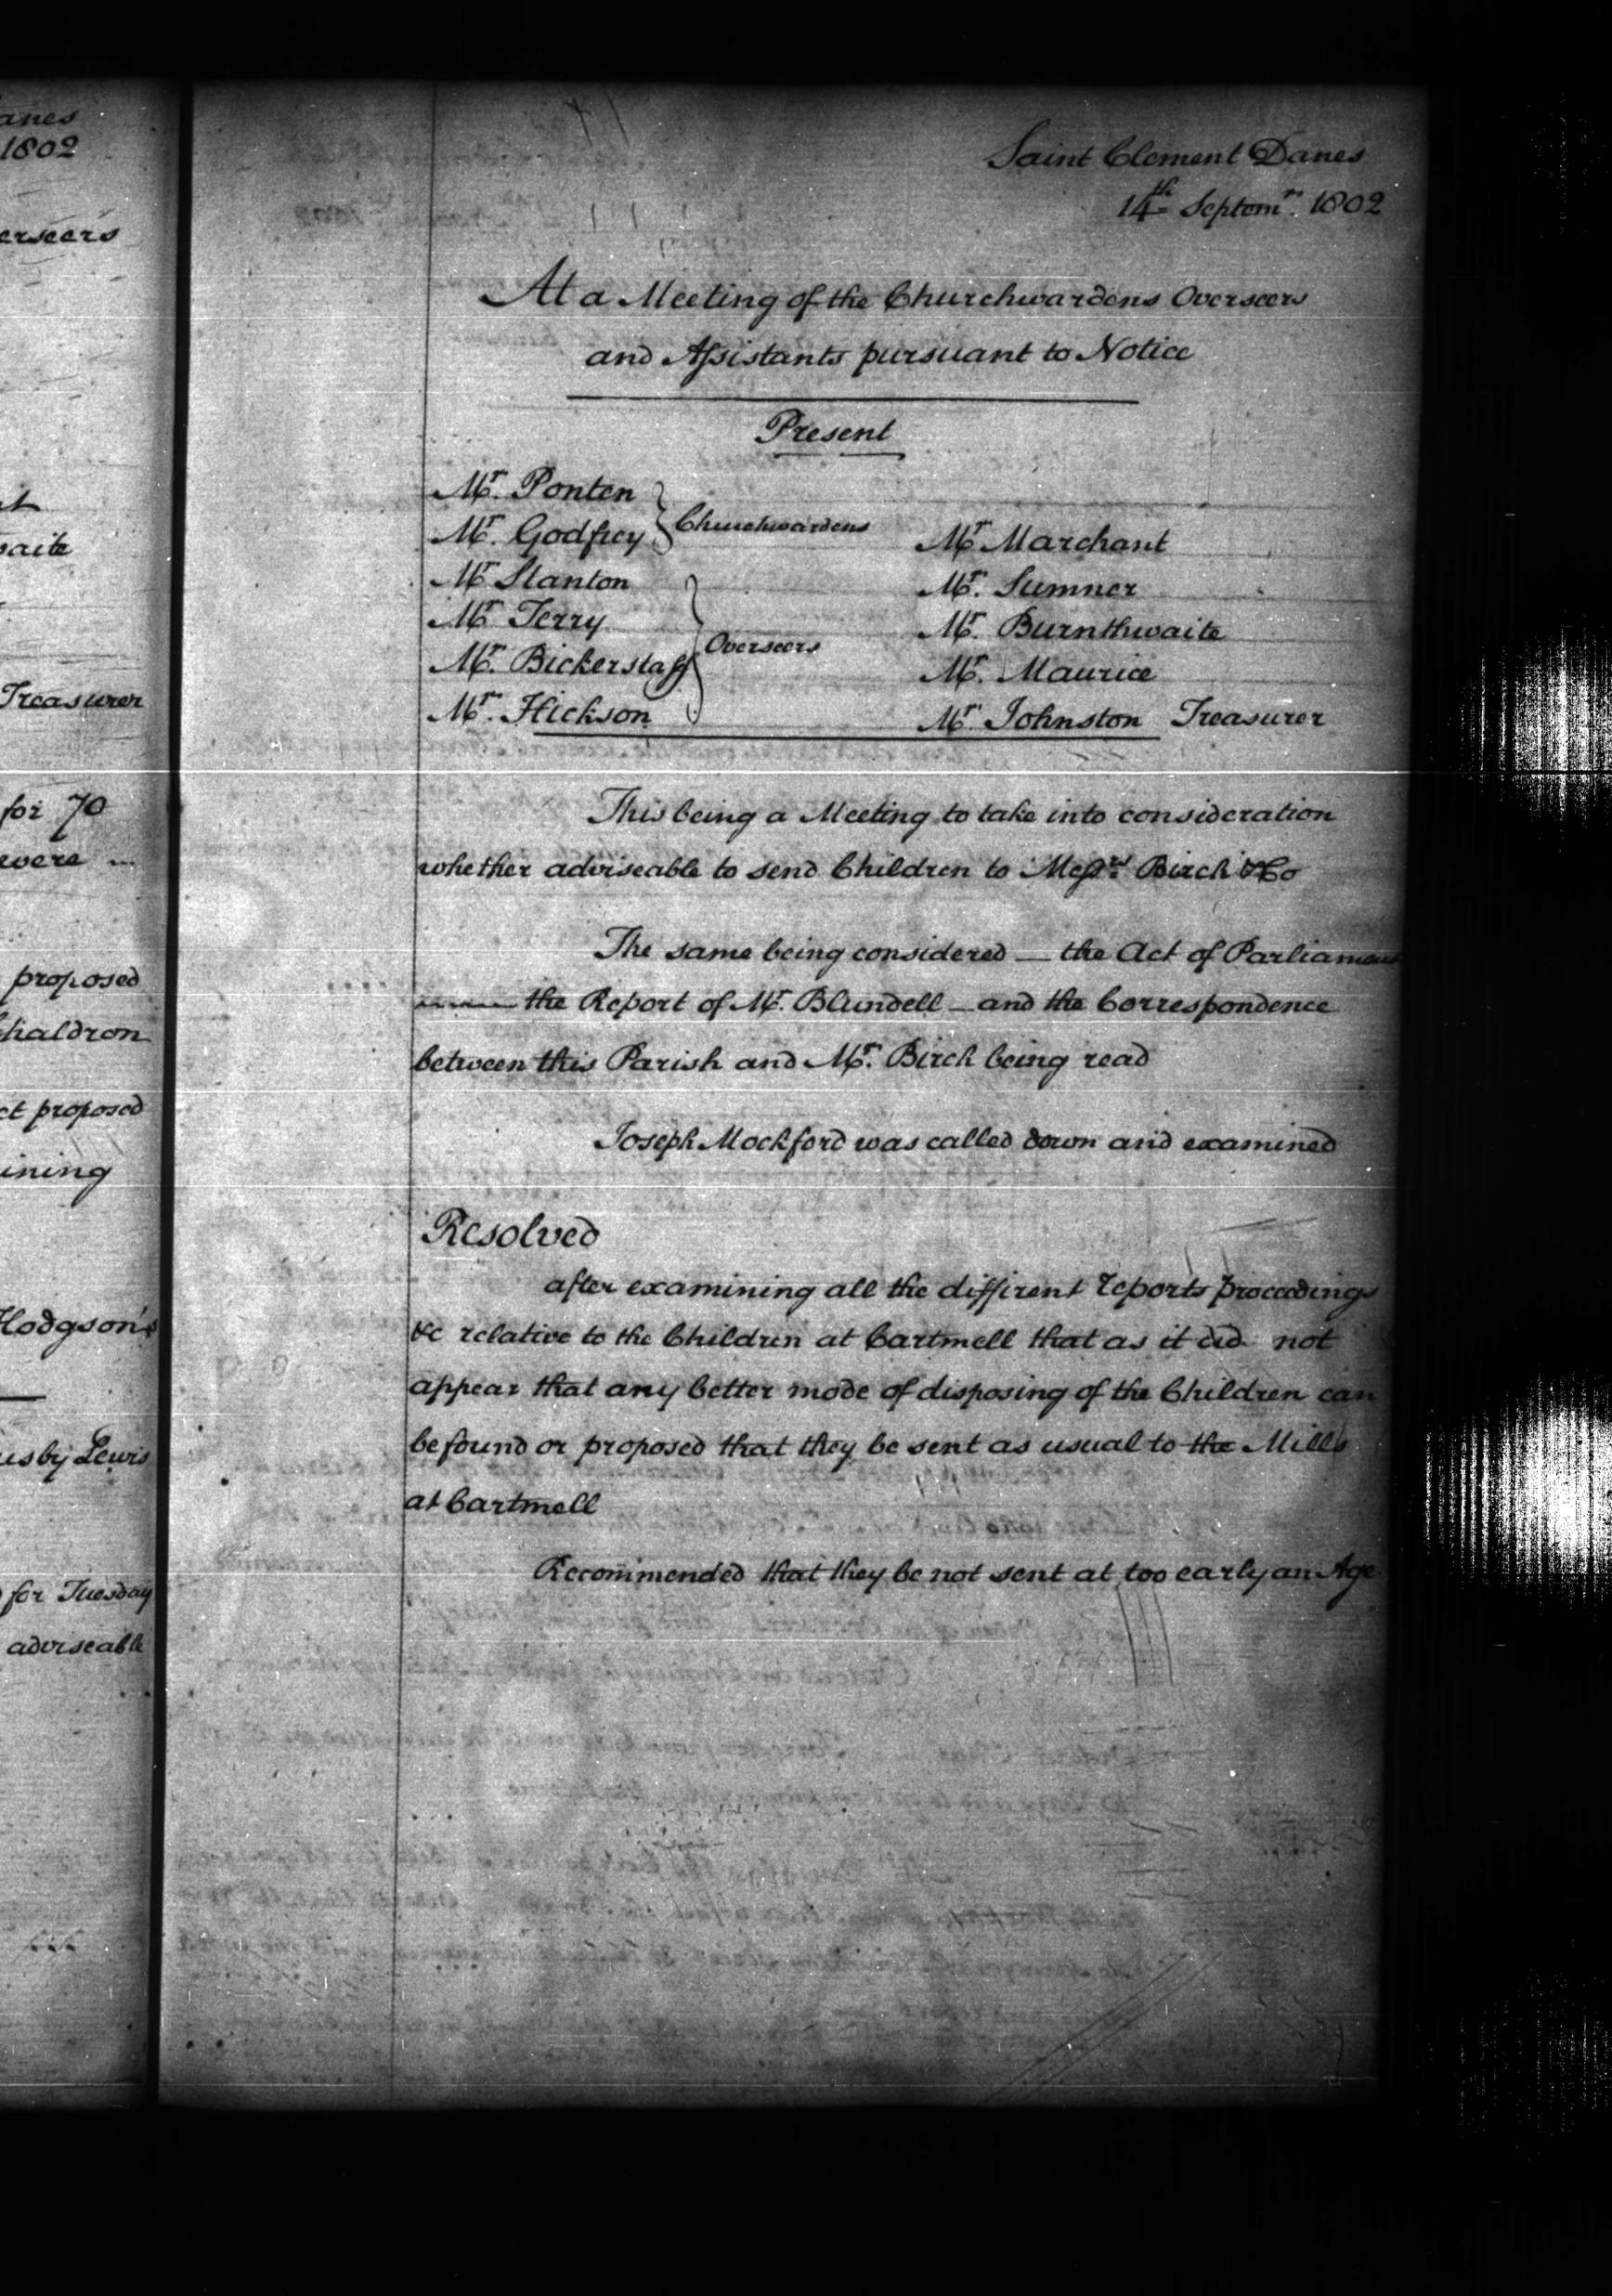 anes
1802
erseers
Treasurer
for 70
were
proposed
haldron
ct proposed
ining
Hodgson's
usby Lewis
for Tuesday
adviseable
Saint Clement Danes
14th Septemr. 1802
At a Meeting of the Churchwardens Overseers
and Assistants pursuant to Notice
Present
Mr. Ponten
Mr. Godfrey
Churchwardens
Mr Stanton
Mr Terry
Mr. Bickerstaff
Mr. Hickson
Overseers
Mr Marchant
Mr. Sumner
Mr. Burnthwaite
Mr. Maurice
Mr. Johnston Treasurer
This being a Meeting to take into consideration
whether adviseable to send Children to Messrs Birch & Co
The same being considered — the Act of Parliament
the Report of Mr. Blundell — and the Correspondence
between this Parish and Mr. Birch being read
Joseph Mockford was called down and examined
Resolved
after examining all the diffirent reports proceedings
&c relative to the Children at Cartmell that as it did not
appear that any better mode of disposing of the Children can
be found or proposed that they be sent as usual to the Mills
at Cartmell
Recommended that they be not sent at too early an Age